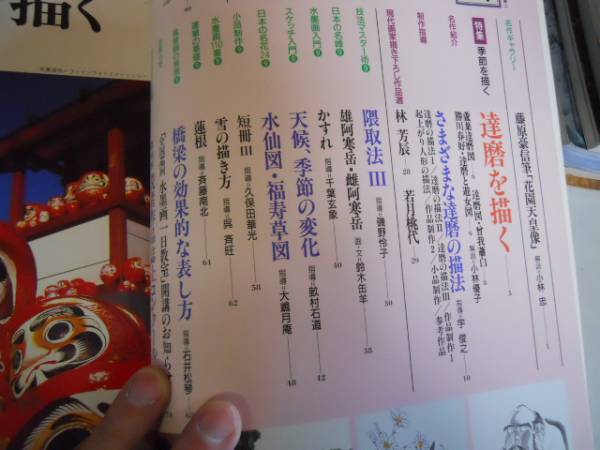 名作ギャラリー
藤原豪信筆「花園天皇像」 解説・小林 忠
特集 季節を描く
達磨を描く
名作紹介
蘆葉達磨図 達磨図・曾我蕭白
勝川春好・達磨と遊女図 解説・小林優子
制作指導
さまざまな達磨の描法 指導・李 俊之 10
達磨の描法Ⅰ/達磨の描法Ⅱ/達磨の描法Ⅲ/作品制作1
起上がり人形の描法/作品制作2/小品制作/参考作品
現代画家描き下ろし作品選
林 芳辰 28
若月桃代 29
技法マスター術
隈取法 Ⅲ 指導・磯野怜子 30
日本の名峰
雄阿寒岳・雌阿寒岳 画・文・鈴木缶羊 38
水墨画入門
かすれ 指導・千葉玄象 40
スケッチ入門
天候、季節の変化 指導・畝村石道 42
日本の名花24
水仙図・福寿草図 指導・大鵜月庵 48
小品制作
短冊 Ⅲ 指導・久保田華光 58
水墨画110番
雪の描き方 指導・呉 斉旺 62
運筆の基礎
蓮根 指導・斉藤南北 64
橋梁の効果的な表し方 指導・石井松琴
「全国縦断 水墨画一日教室」開講のお知ら
描く